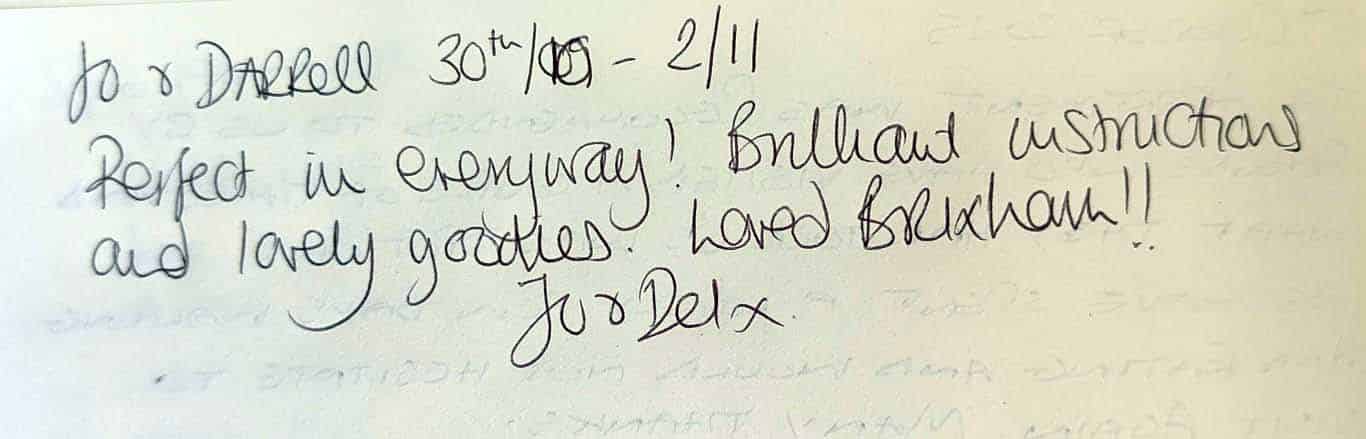 Jo & DARRell 30th/10 - 2/11
Perfect in everyway! Brilliant instructions
and lovely goodies. Loved BRIxham!!
Jo & Del x